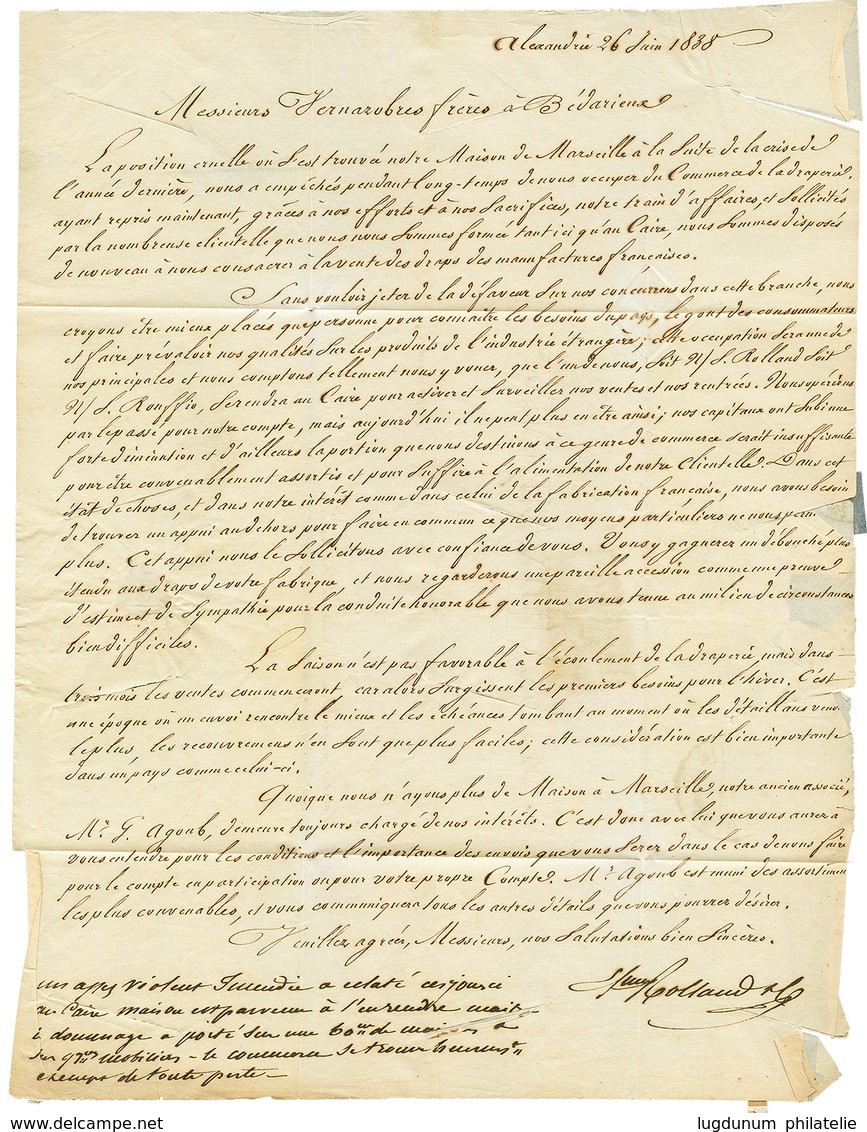 Alexandrie 26 Juin 1838
Messieurs Vernazobres frères à Bédarieux
La position cruelle où s'est trouvée notre Maison de Marseille à la suite de la crise de
l'année dernière, nous a empêchés pendant long-temps de nous occuper du Commerce de la draperie.
ayant repris maintenant, grâces à nos efforts et à nos sacrifices, notre train d'affaires, et sollicités
par la nombreuse clientelle que nous nous sommes formée tant ici qu'au Caire, nous sommes disposés
de nouveau à nous consacrer à la vente des draps des manufactures françaises.
Sans vouloir jeter de la défaveur sur nos concurrens dans cette branche, nous
croyons être mieux placés que personne pour connaitre les besoins du pays, le gout des consommateurs
et faire prévaloir nos qualités sur les produits de l'industrie étrangère; cette occupation sera une de
nos principales et nous comptons tellement nous y vouer, que l'un de nous, soit N/ S. Rolland soit
N/ S. Rouffio, se rendra au Caire pour activer et surveiller nos ventes et nos rentrées. Nous opérions
par le passé pour notre compte, mais aujourd'hui il ne peut plus en être ainsi; nos capitaux ont subi une
forte diminution et d'ailleurs la portion que nous destinons à ce genre de commerce serait insuffisante
pour être convenablement assortis et pour suffire à l'alimentation de notre clientelle. Dans cet
état de choses, et dans notre intérêt comme dans celui de la fabrication française, nous avons besoin
de trouver un appui au dehors pour faire en commun ce que nos moyens particuliers ne nous perm
plus. Cet appui nous le sollicitons avec confiance de vous. Vous y gagnerez un débouché plus
étendu aux draps de votre fabrique, et nous regarderons une pareille accession comme une preuve
d'estime et de sympathie pour la conduite honorable que nous avons tenue au milieu de circonstances
bien difficiles.
La saison n'est pas favorable à l'écoulement de la draperie, mais dans
trois mois les ventes commenceront, car alors surgissent les premiers besoins pour l'hiver. C'est
une époque où un envoi rencontre le mieux et les échéances tombant au moment où les détaillans vend
le plus, les recouvremens n'en sont que plus faciles; cette considération est bien importante
dans un pays comme celui-ci.
Quoique nous n'ayons plus de Maison à Marseille, notre ancien associé,
Mr. G. Agoub, demeure toujours chargé de nos intérêts. C'est donc avec lui que vous aurez à
vous entendre pour les conditions et l'importance des envois que vous serez dans le cas de nous faire
pour le compte en participation ou pour votre propre Compte. Mr. Agoub est muni des assortimen
les plus convenables, et vous communiquera tous les autres détails que vous pourrez désirer.
Veuillez agréer, Messieurs, nos salutations bien sincères.
Rolland & C
un assez violent Incendie a eclaté ces jours ci
au Caire mais on est parvenu à l'eteindre
dommage a porté sur une 60ne de maisons &
mobiliers - le commerce se trouve
de toute perte -
lugdunum philatelie